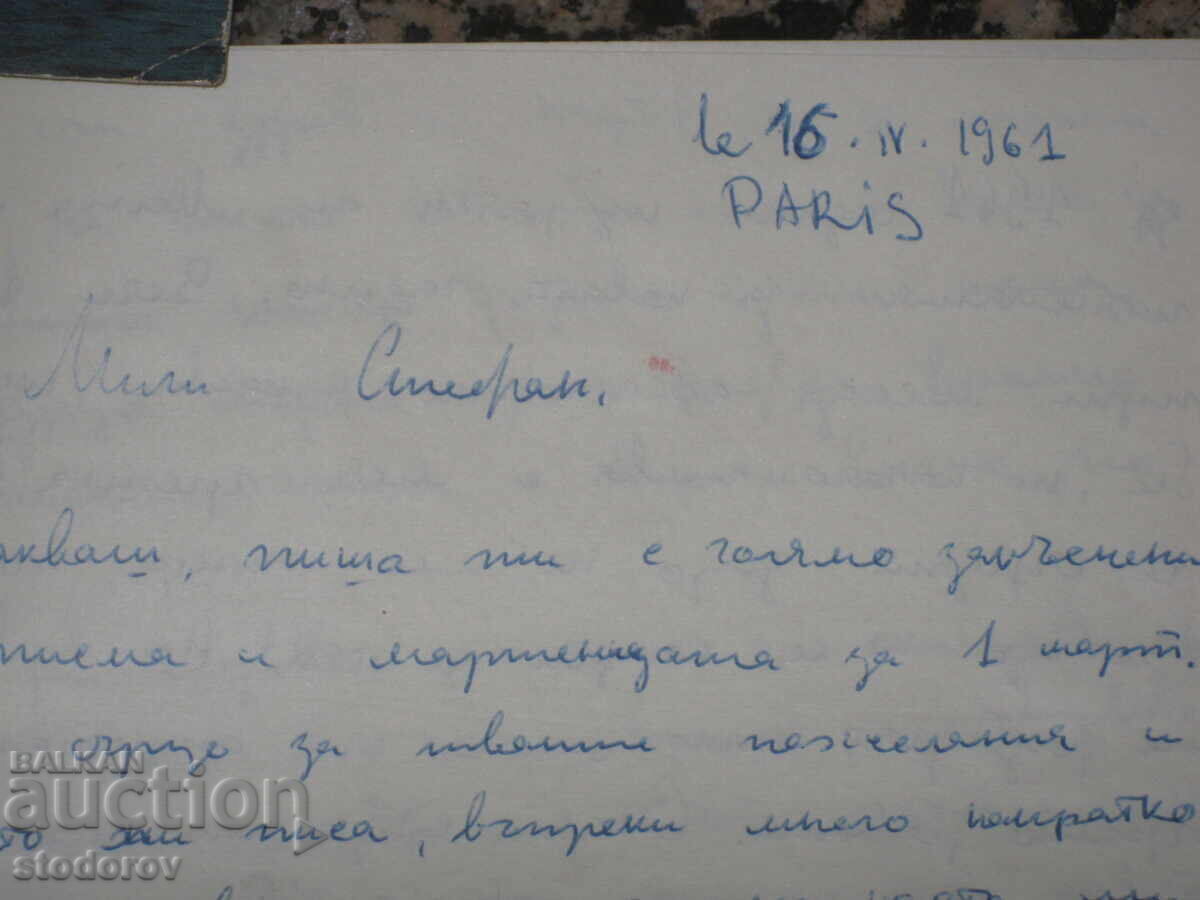 le 16. IV. 1961
PARiS
Мили Стефан,
акваш, пиша ти с голямо закъснени
писма и мартеницата за 1 март.
сърце за твоите пожелания и
то ми писа, въпреки много накратко
BALKAN
auction
stodorov